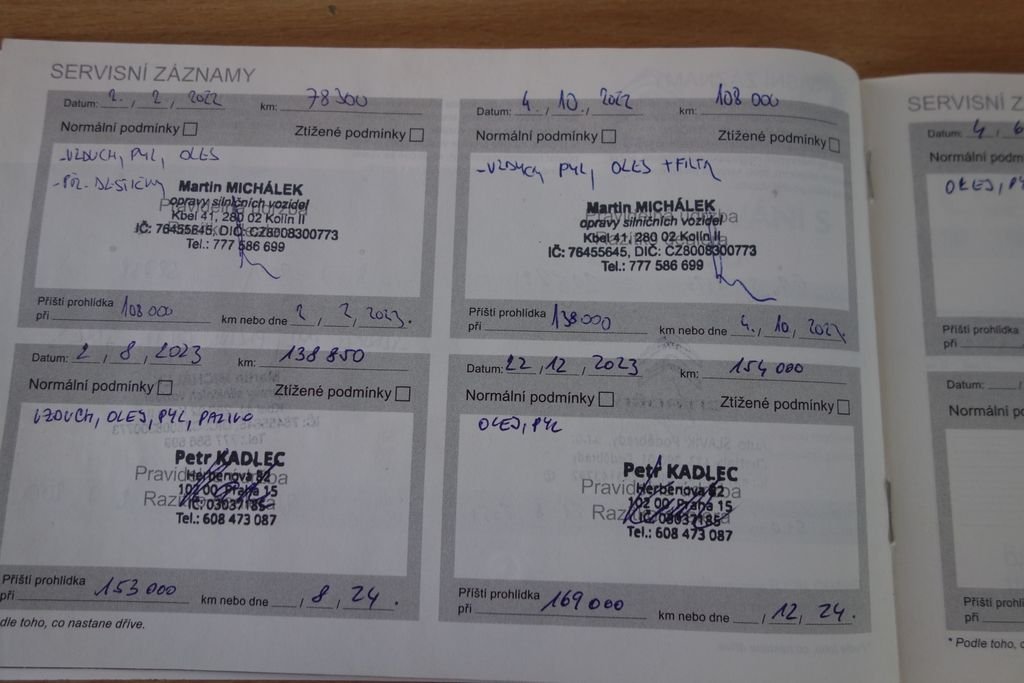 SERVISNÍ ZÁZNAMY
Datum: 2. / 2 / 2022 km: 78300
Normální podmínky Ztížené podmínky
-VZDUCH, PYL, OLEJ
-PŘ.
Martin MICHÁLEK
opravy silničních vozidel
Kbel 41, 280 02 Kolín II
IČ: 76455645, DIČ: CZ8008300773
Tel.: 777 586 699
Příští prohlídka
při 108 000 km nebo dne 2 / 2 / 2023.
Datum: 4. / 10. / 2022 km: 108 000
Normální podmínky Ztížené podmínky
-VZDUCH, PYL, OLEJ + FILTR
Martin MICHÁLEK
Pravidelná údržba
opravy silničních vozidel
Kbel 41, 280 02 Kolín II
IČ: 76455645, DIČ: CZ8008300773
Tel.: 777 586 699
Příští prohlídka
při 138000 km nebo dne 4. / 10. / 2023.
Datum: 2 / 8 / 2023 km: 138 850
Normální podmínky Ztížené podmínky
VZDUCH, OLEJ, PYL, PALIVO
Petr KADLEC
Herbenova 52
102 00 Praha 15
IČ: 03037185
Tel.: 608 473 087
Příští prohlídka
při 153 000 km nebo dne / 8 / 24.
Datum: 22 / 12 / 2023 km: 154 000
Normální podmínky Ztížené podmínky
OLEJ, PYL
Petr KADLEC
Herbenova 52
102 00 Praha 15
IČ: 03037185
Tel.: 608 473 087
Příští prohlídka
při 169 000 km nebo dne / 12 / 24.
dle toho, co nastane dříve.
SERVISNÍ Z
Datum: 4 / 6
Normální podm
OLEJ, PY
Příští prohlídka
při
Datum: /
Normální po
Příští prohlí
při
* Podle toho, c